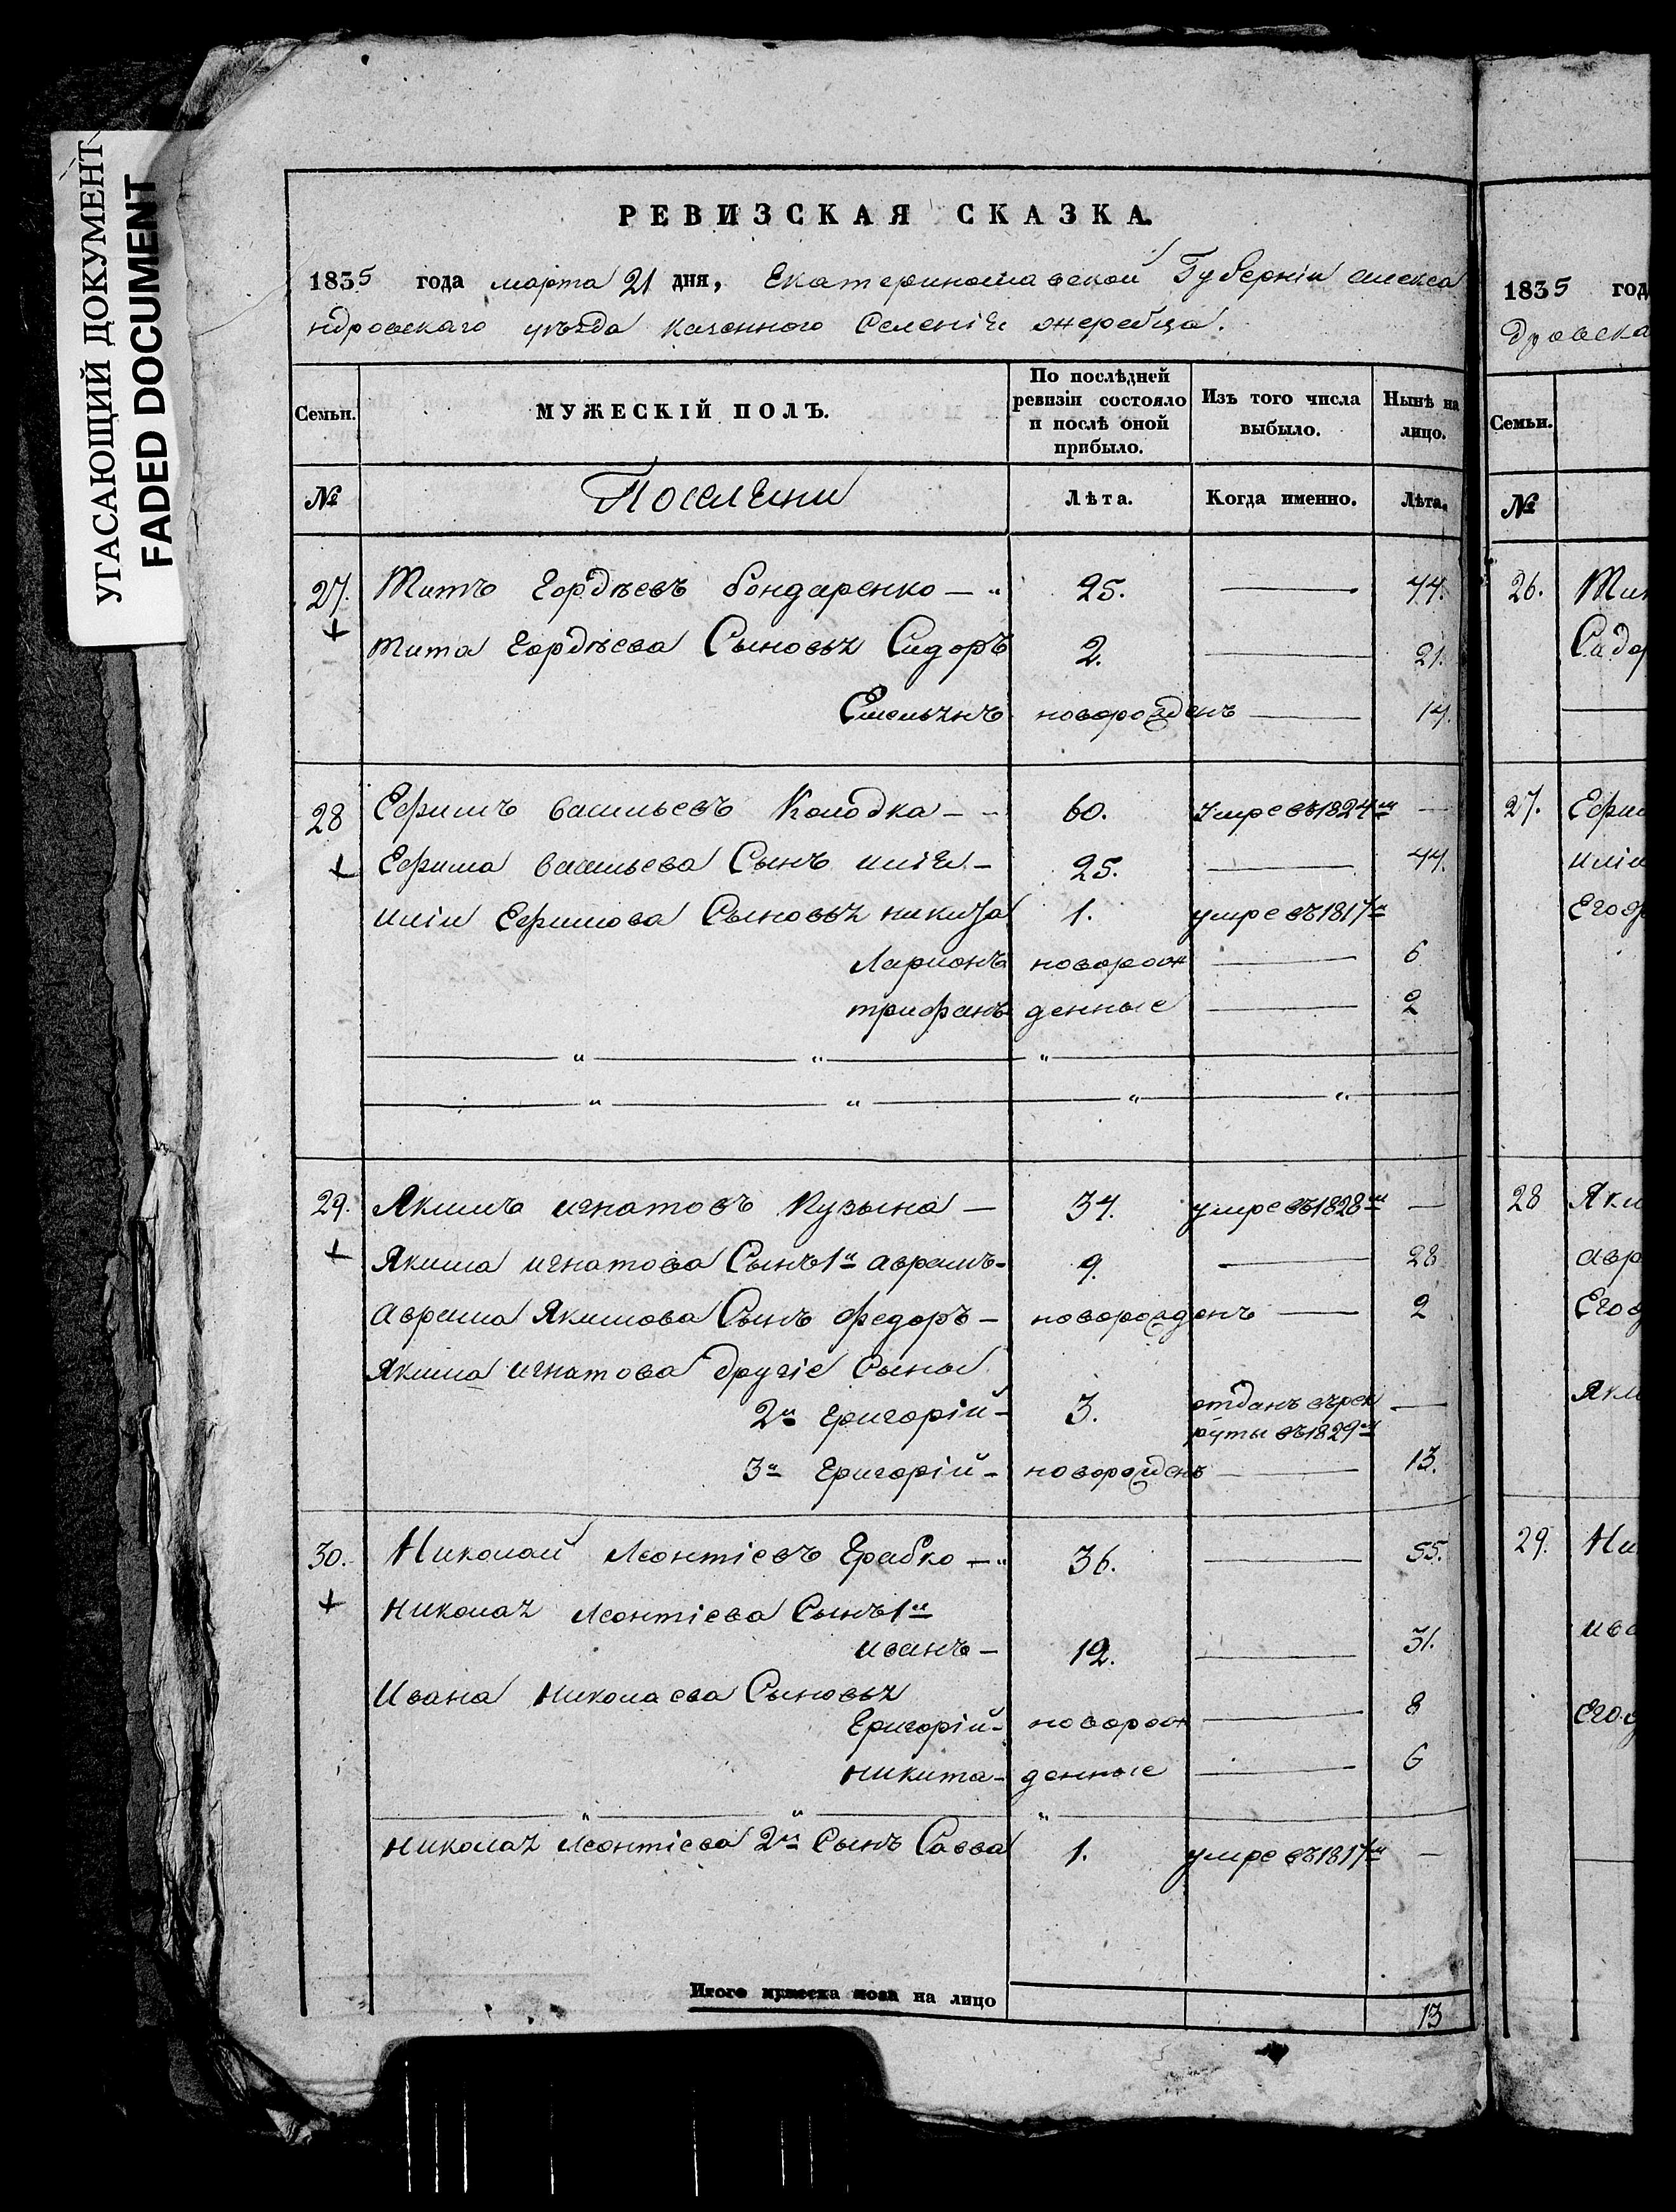 УГАСАЮЩИЙ ДОКУМЕНТ
FADED DOCUMENT
РЕВИЗСКАЯ СКАЗКА.
1835 года марта 21 дня, Екатеринославской Губерніи алекса
ндровскаго уѣзда казенного Селенія жеребца.
Семьи. МУЖЕСКІЙ ПОЛЪ. По послѣдней ревизіи состояло и послѣ оной прибыло. Изъ того числа выбыло. Нынѣ на лицо.
№ Поселяни Лѣта. Когда именно. Лѣта.
27. Титъ Гордѣевъ бондаренко — „ 25. — 44.
Тита Гордѣева Сыновья Сидоръ 2. — 21.
Емельянъ новорожденъ — 14.
28 Ефимъ васильевъ Колодка — - 60. Умре въ 1824м —
Ефима васильева Сынъ илія — 25. — 44.
иліи Ефимова Сыновья никита 1. умре въ 1817м
Ларионъ новорож — 6
трифанъ денные — 2
29. Якимъ игнатовъ Кузьма — 34. умре въ 1828м —
Якима игнатова Сынъ 1й аврамъ - 9. — 28
аврама Якимова Сынъ федоръ — новорожденъ — 2
Якима игнатова другіе Сыны
2й Григорій - 3. отданъ въ рек —
руты въ 1829м
3й Григорій - новорожденъ — 13.
30. Николай Леонтіевъ Грабко — „ 36. — 55.
николая Леонтіева Сынъ 1й
иванъ — 12. — 31.
Ивана николаева Сыновья
Григорій - новорож — 8
никита - денные — 6
николая Леонтіева 2й Сынъ Савва 1. умре въ 1817м —
Итого мужеска пола на лицо 13
1835 год
дровска
Семьи.
№
26. Тит
Сидор
27. Ефим
иліи
Его
28 Яким
авр
Его
Яким
29. Ни
ива
Его